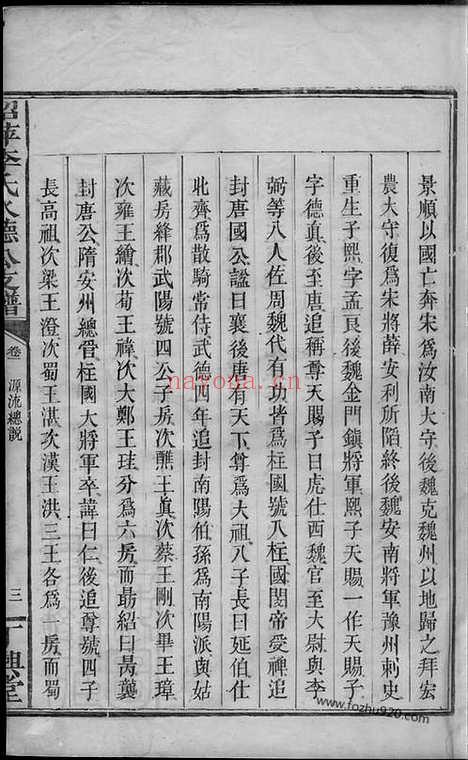 景順以國亡奔宋爲汝南大守後魏克魏州以地歸之拜宏
農大守復爲宋將薛安利所陷終後魏安南將軍豫州刺史
重生子熙字孟良後魏金門鎮將軍熙子天賜一作天賜子
字德真後至唐追稱尊天賜子曰虎仕西魏官至大尉與李
弼等八人佐周魏代有功皆爲柱國號八柱國閔帝受禅追
封唐國公謚曰襄後唐有天下尊爲大祖八子長曰延伯仕
北齊爲散騎常侍武德四年追封南陽伯孫爲南陽派與姑
藏房絳郡武陽號四公子房次譙王真次蔡王剛次畢王璋
次雍王繪次蒟王褘次大鄭王珪分爲六房而最紹曰昺龔
封唐公隋安州總管柱國大將軍卒諱曰仁後追尊號四子
長高祖次梁王澄次蜀王湛次漢王洪三王各爲一房而蜀
氏
德公支譜
卷
源流總説
三
興堂
nayona.cn
www.fozhu920.com